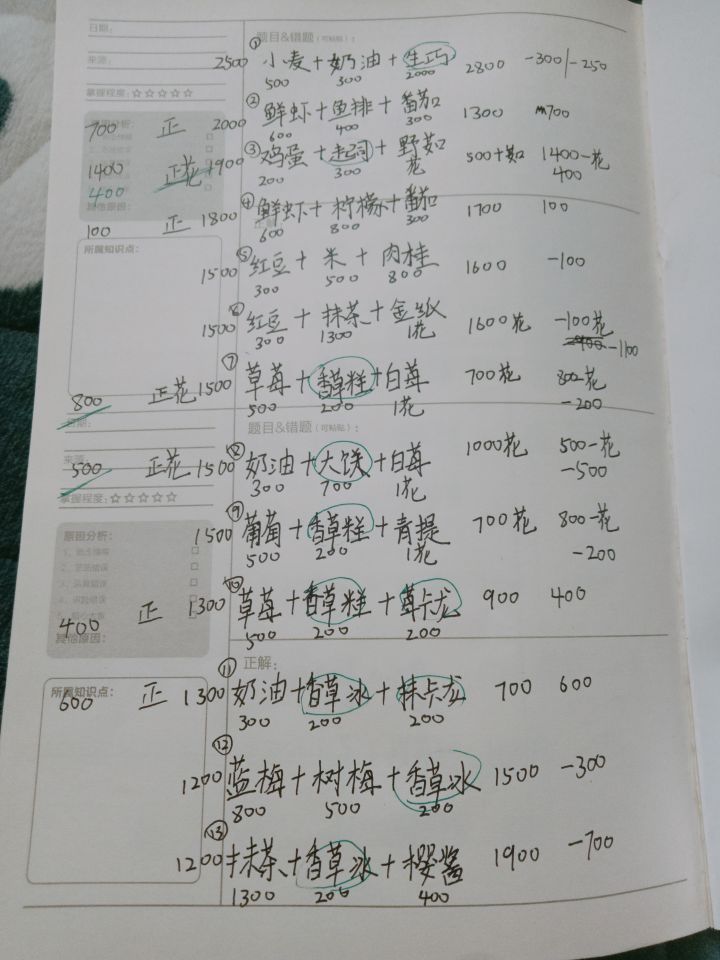 日期:
题目&错题(可粘贴):
① 2500 小麦+奶油+生巧 2800 -300/-250
500 300 2000
来源:
掌握程度:☆☆☆☆☆
② 700 正 2000 鲜虾+鱼排+番茄 1300 700
600 400 300
原因分析:
③ 1400 正花 1900 鸡蛋+起司+野菇 500+菇 1400-花
400 200 300 花 400
其他原因:
④ 100 正 1800 鲜虾+柠檬+番茄 1700 100
600 800 300
正解:
所属知识点:
⑤ 1500 红豆+米+肉桂 1600 -100
300 500 800
⑥ 1500 红豆+抹茶+金纸 1600花 -100花
300 1300 1花 -1100
⑦ 800 正花 1500 草莓+香草糕+白莓 700花 800-花
500 200 1花 -200
日期:
题目&错题(可粘贴):
来源:
⑧ 500 正花 1500 奶油+大馍+白莓 1000花 500-花
300 700 1花 -500
掌握程度:☆☆☆☆☆
⑨ 1500 葡萄+香草糕+青提 700花 800-花
500 200 1花 -200
原因分析:
⑩ 400 正 1300 草莓+香草糕+莓卡龙 900 400
500 200 200
其他原因:
正解:
所属知识点:
⑪ 600 正 1300 奶油+香草冰+抹卡龙 700 600
300 200 200
⑫ 1200 蓝梅+树梅+香草冰 1500 -300
800 500 200
⑬ 1200 抹茶+香草冰+樱酱 1900 -700
1300 200 400